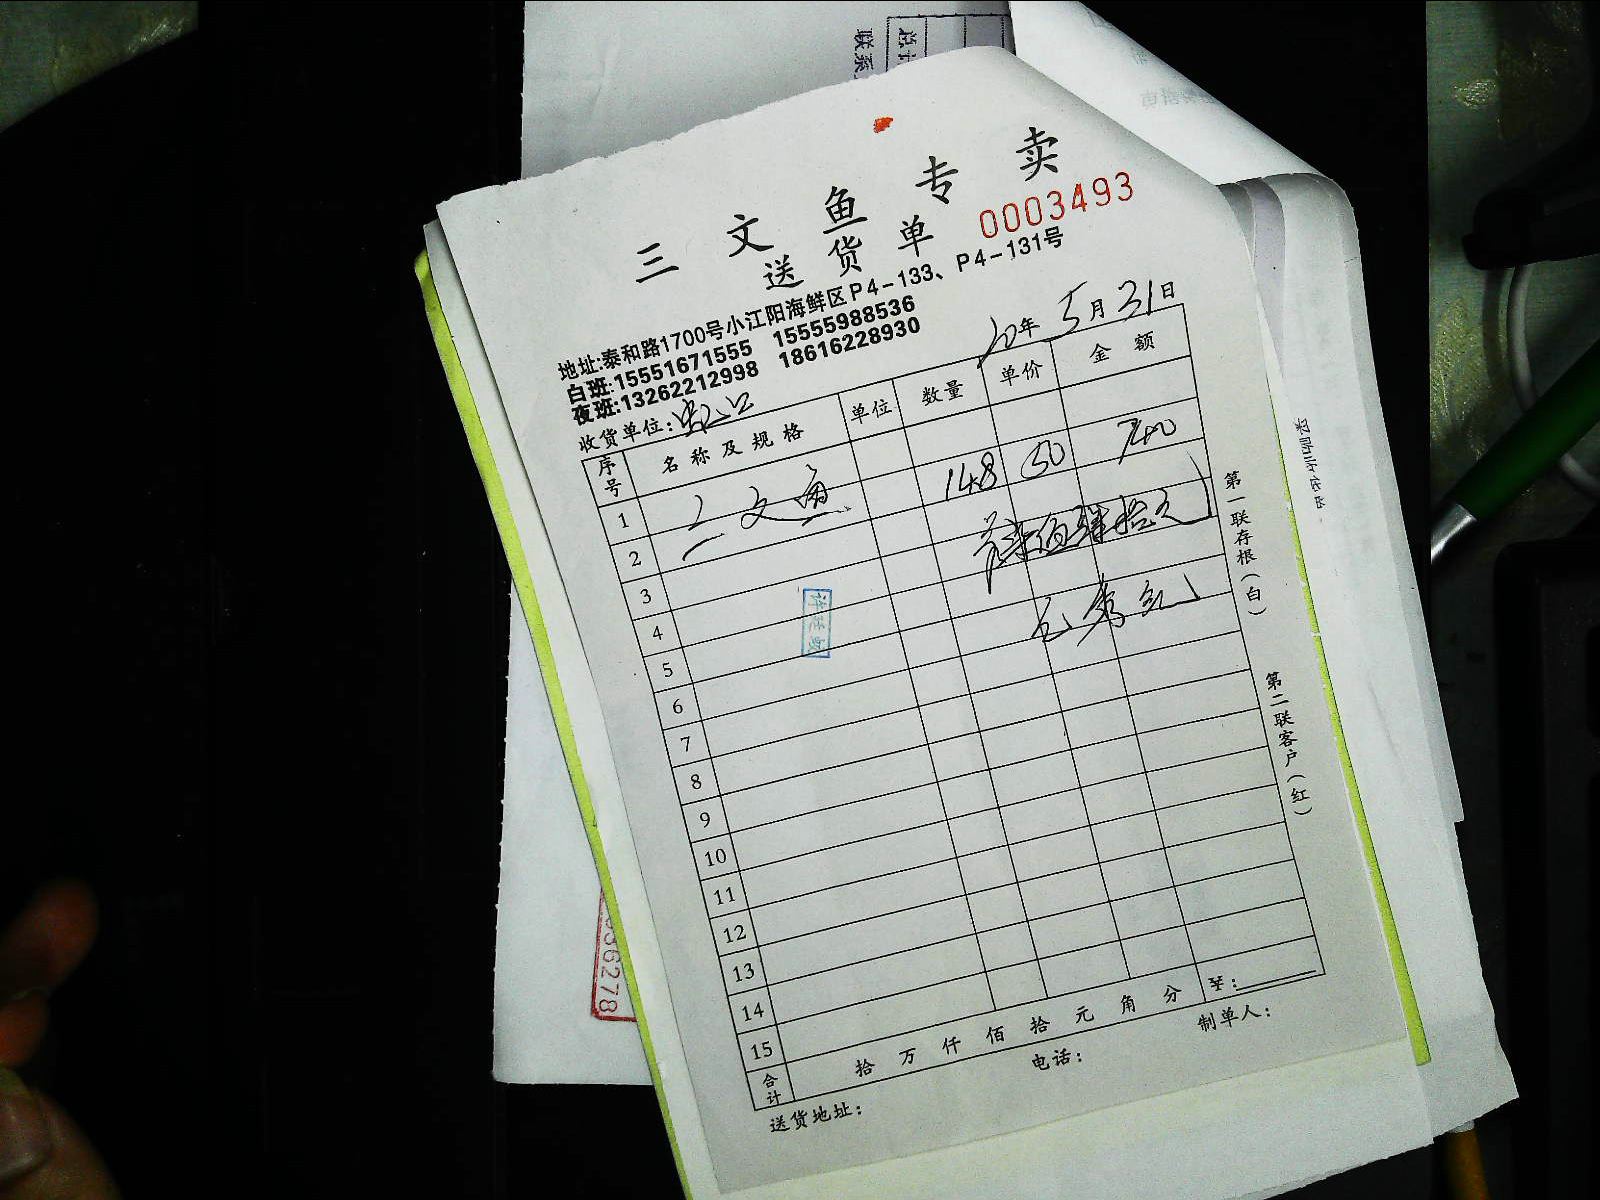 三文鱼专卖
送货单 0003493
地址:泰和路1700号小江阳海鲜区P4-133、P4-131号
白班:15551671555 15555988536
夜班:13262212998 18616228930
20年5月31日
收货单位:
序号 名称及规格 单位 数量 单价 金额
1 三文鱼 148 50 740
2
3
4
5
6
7
8
9
10
11
12
13
14
15
合计 拾 万 仟 佰 拾 元 角 分 ¥:
送货地址: 电话: 制单人:
第一联存根(白)
第二联客户(红)
336278
总计
联系